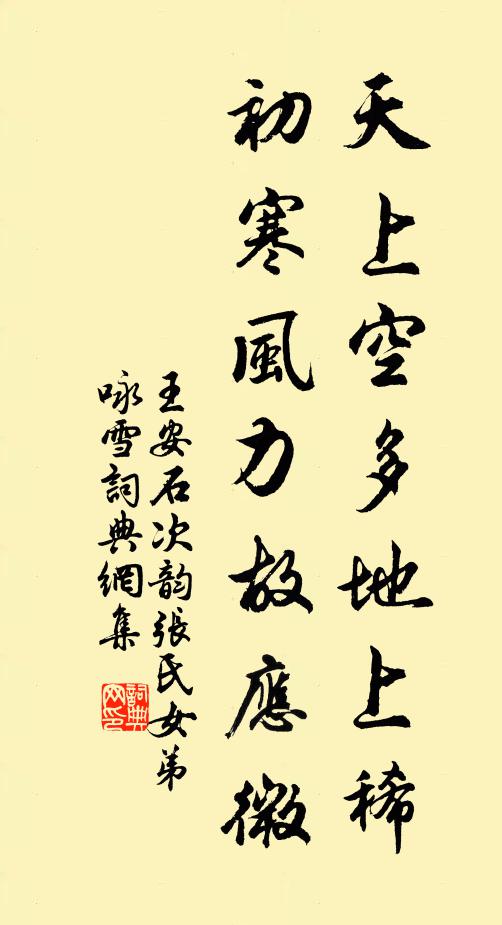 天上空多地上稀
初寒風力故應微
王安石次韵張氏女弟
咏雪詞典網集
詞典
网印